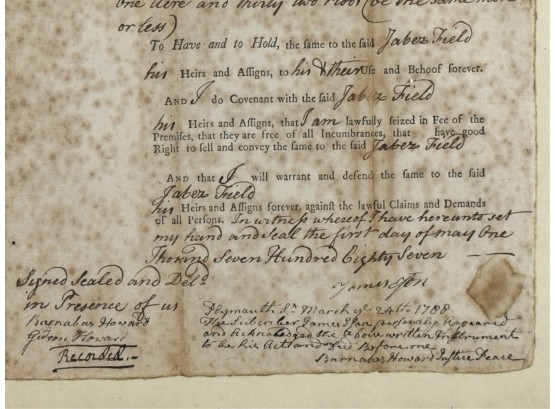 one Acre and thirty two Rood (be the same more
or less)
To Have and to Hold, the same to the said Jabez Field
his Heirs and Assigns, to his & their Use and Behoof forever.
AND I do Covenant with the said Jabez Field
his Heirs and Assigns, that I am lawfully seized in Fee of the
Premises, that they are free of all Incumbrances, that have good
Right to sell and convey the same to the said Jabez Field
AND that I will warrant and defend the same to the said
Jabez Field
his Heirs and Assigns forever, against the lawful Claims and Demands
of all Persons. In witness whereof I have hereunto set
my hand and Seal the first day of may One
Thousand Seven Hundred Eighty Seven
Signed Sealed and Deld
in Presence of us
Barnabas Howard
Gideon Howard
Recorded.
James
Plymouth Ss March ye 24th 1788
The Subscriber James personally appeared
and acknowledged the above written Instrument
to be his Act and Deed Before me
Barnabas Howard Justice Peace